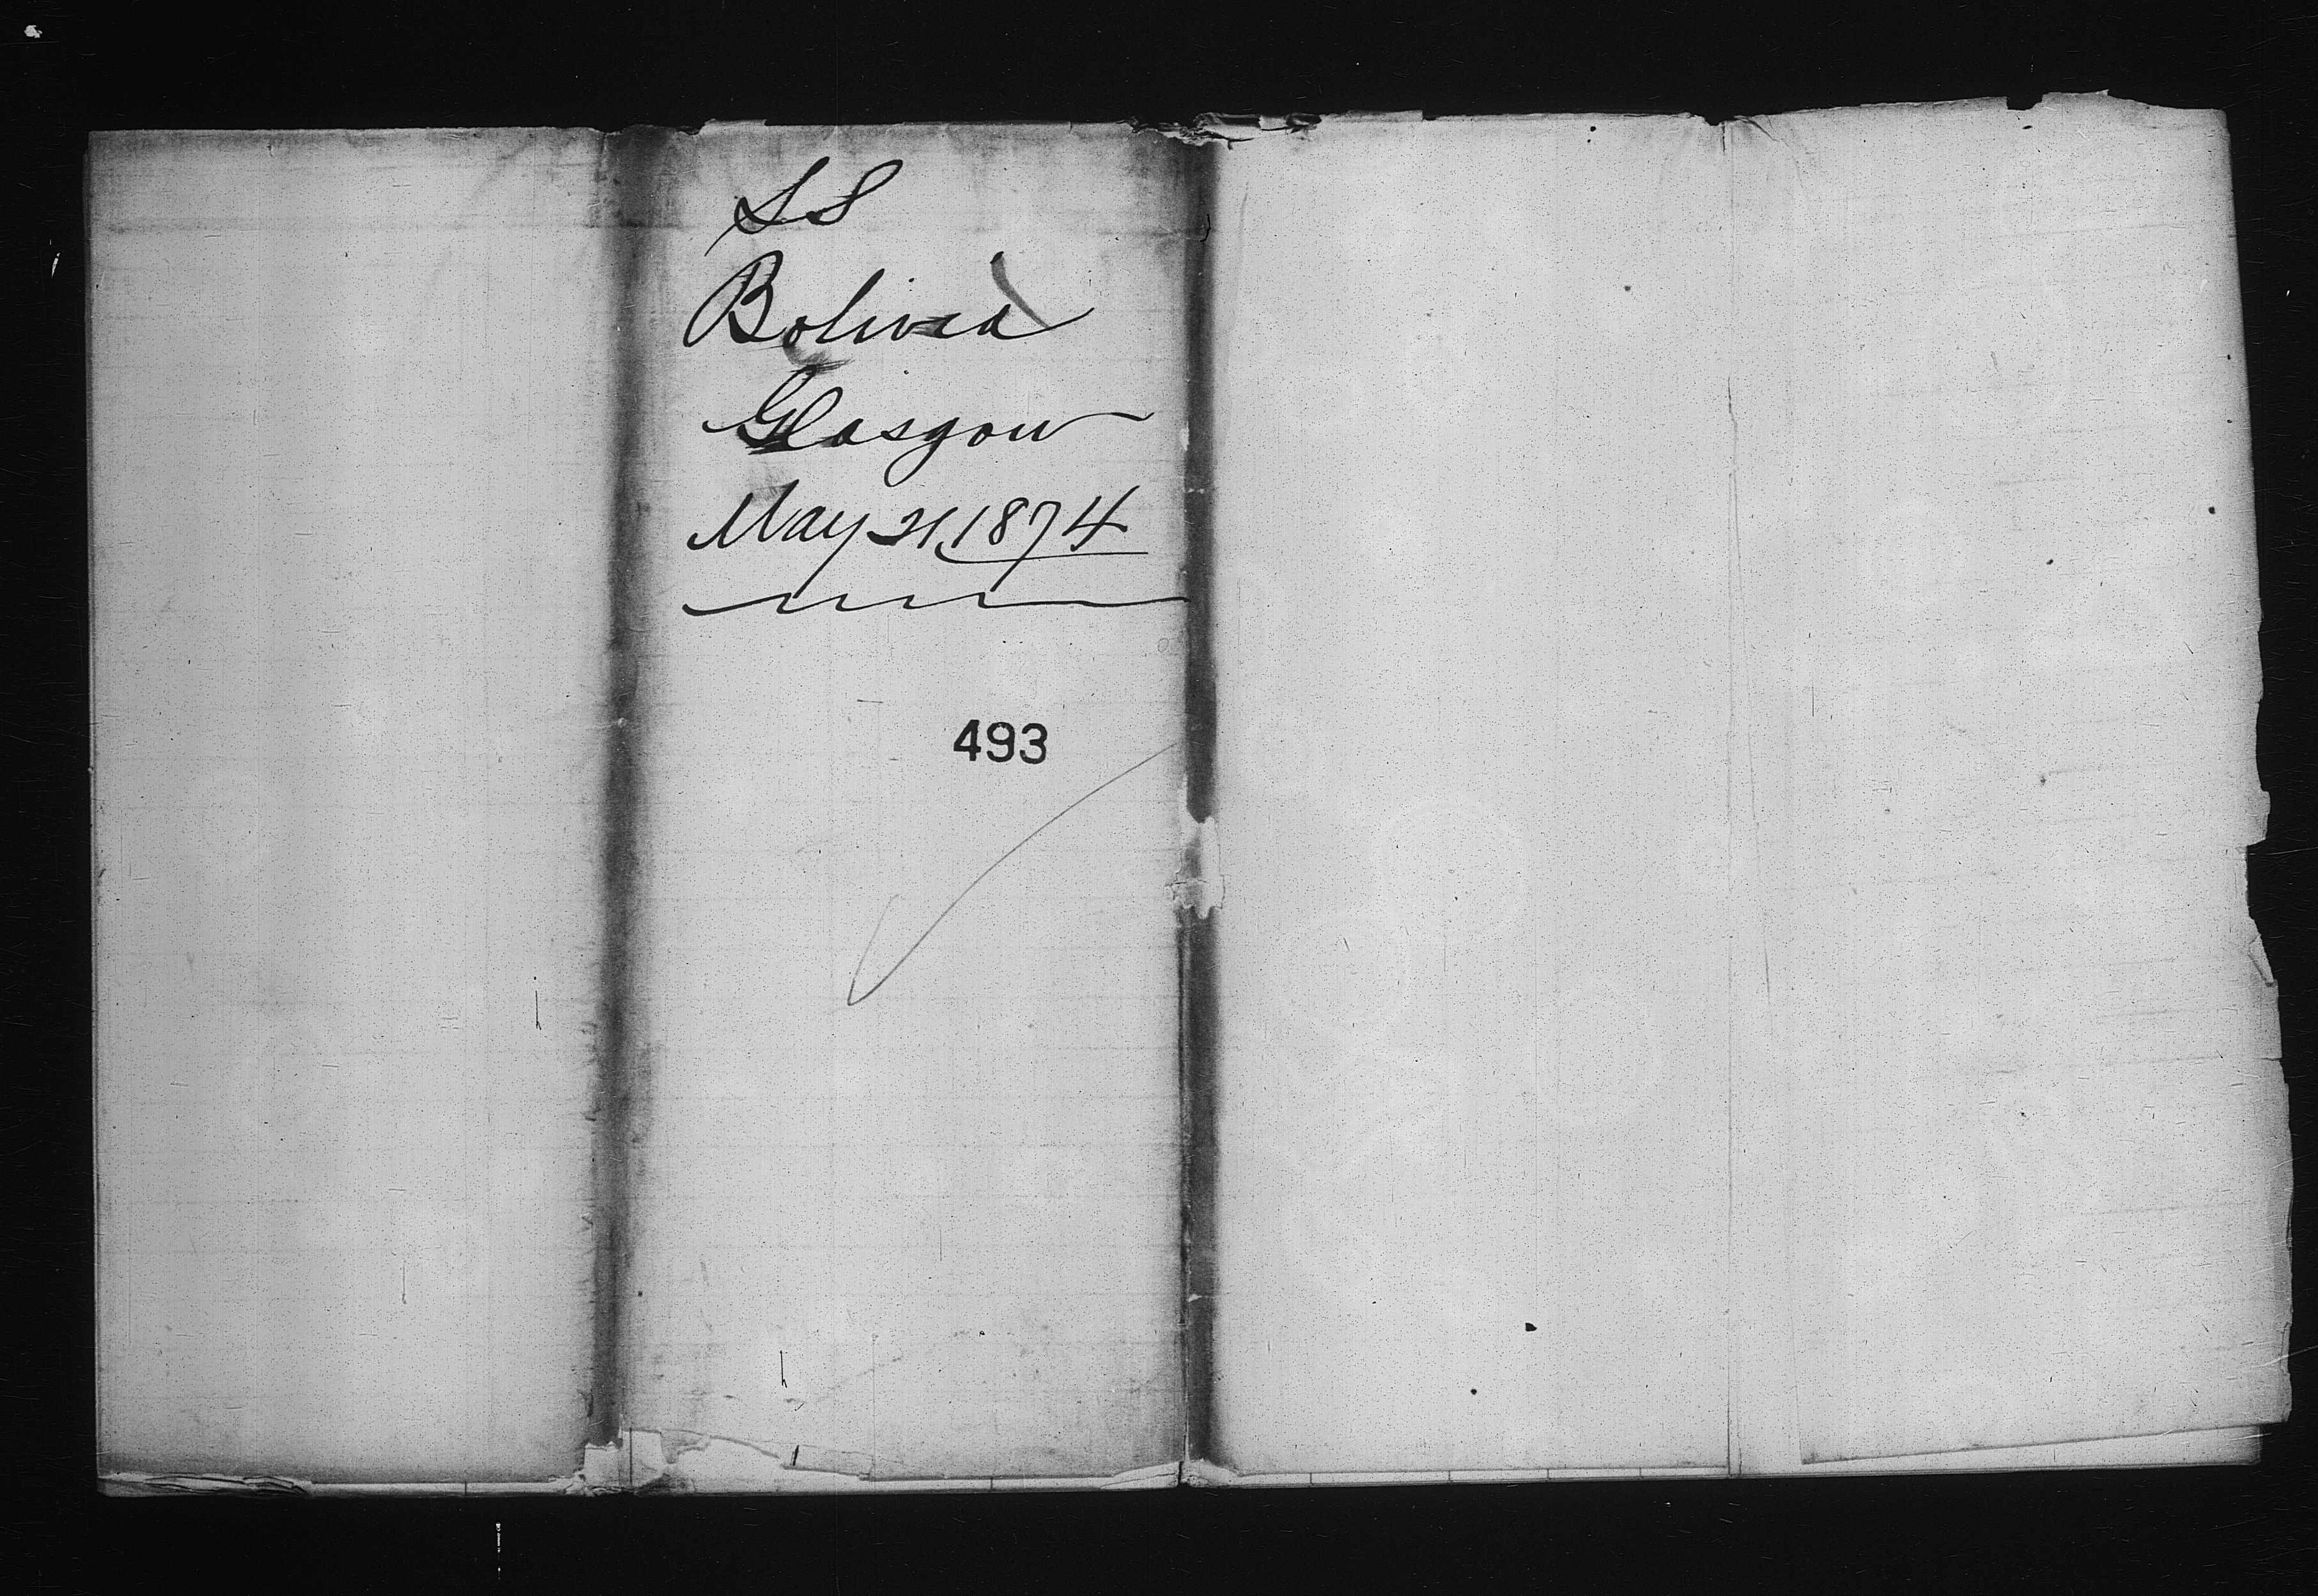 SS
Bolivia
Glasgow
May 21, 1874
493